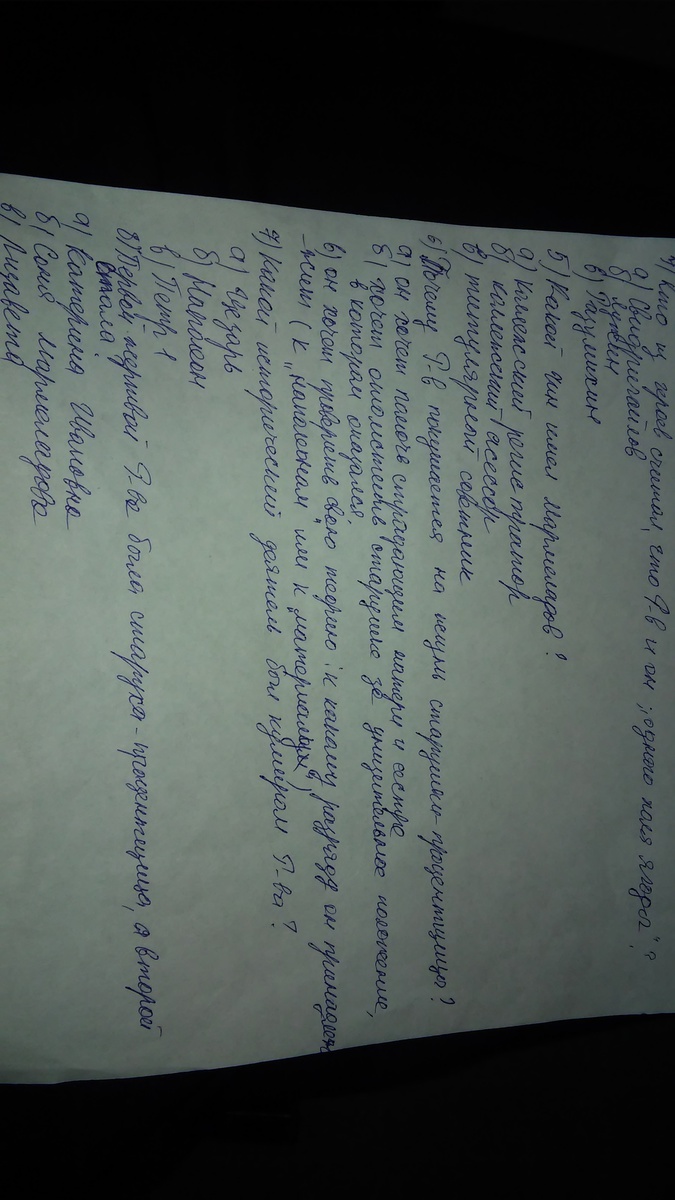 4) Кто из героев считал, что Р-в и он „одного поля ягода"?
а) Свидригайлов
б) Лужин
в) Разумихин
5) Какой чин имел Мармеладов?
а) коллежский регистратор
б) коллежский асессор
в) титулярный советник
6) Почему Р-в покушается на жизнь старушки-процентщицы?
а) он хочет помочь страдающим матери и сестре
б) хочет отомстить старушке за унизительное положение,
в котором оказался
в) он хочет проверить свою теорию: к какому разряду он принадле-
-жит (к „Наполеонам" или к „материалу")
7) Какой исторический деятель был кумиром Р-ва?
а) Цезарь
б) Наполеон
в) Петр I
8) Первой жертвой Р-ва была старуха-процентщица, а второй
стала:
а) Катерина Ивановна
б) Соня Мармеладова
в) Лизавета